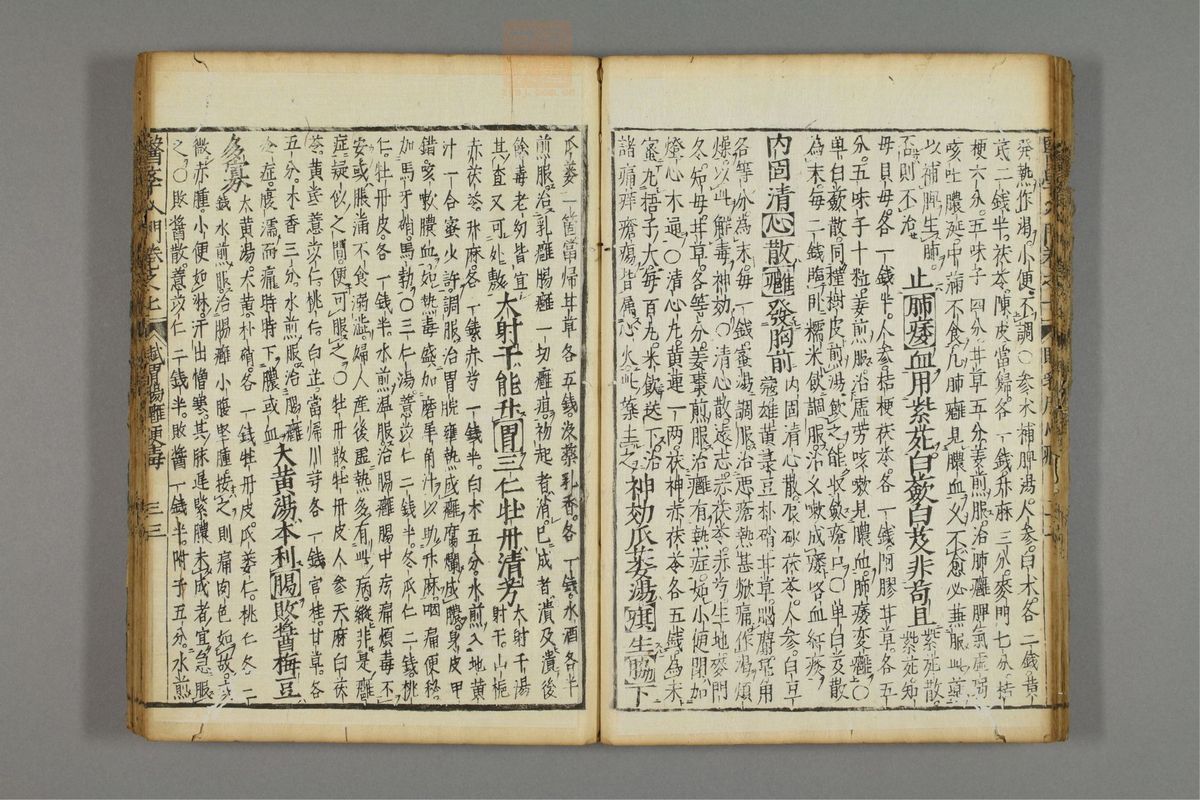 發熱作渴小便不調○參朮補脾湯人參白朮各二錢黃
芪二錢半茯苓陳皮當歸各一錢升麻三分麥門七分桔
梗六分五味子四分甘草五分姜煎服治肺癰脾氣虛弱
咳吐膿涎中滿不食凡肺癰見膿血久不愈必兼服此藥
以補脾生肺
否則不治
止肺痿血用紫菀白蘞白芨非苟且
紫菀散紫菀知
母貝母各一錢半人參桔梗茯苓各一錢阿膠甘草各五
分五味子十粒姜煎服治虛劳咳嗽見膿血肺痿变癰○
單白蘞散同槿樹皮煎湯飲之能收斂瘡口○單白芨散
為末每二錢臨卧糯米飲調服治久嗽成痿咯血
內固清心散癰發胸前
內固清心散辰砂茯苓人參白豆
蔻雄黃菉豆朴硝甘草腦麝
各等分為末每一錢蜜湯調服治恶瘡熱甚焮痛作渴煩
燥以此解毒神効○清心散遠志赤茯苓赤芍生地麥門
冬知母甘草各等分姜棗煎服治癰有熱症如小便閉加
燈心木通○清心丸黃連一兩茯神赤茯苓各五錢為末
蜜丸梧子大每百丸米飲送下治
諸痛痒瘡瘍皆属心火此藥主之
神効瓜蔞湯
生脇下
瓜蔞一箇當歸甘草各五錢没藥乳香各一錢水酒各半
煎服治乳癰腸癰一切癰疽初起者消已成者潰及潰後
餘毒老幼皆宜
其查又可外敷
太射干能升胃三仁牡丹清芳
太射干湯
射干山梔
赤茯苓升麻各一錢赤芍一錢半白朮五分水煎入地黃
汁一合蜜少許調服治胃脘壅熱成癰腐爛成膿身皮甲
錯咳嗽膿血如熱毒盛加磨羊角汁以助升麻咽痛便秘
加馬牙硝馬勃○三仁湯薏苡仁二錢半冬瓜仁二錢桃
仁牡丹皮各一錢半水煎温服治腸癰腸中疼痛煩毒不
安或脹滿不食溺澁婦人産後虛熱多有此病縱非是癰
症疑似之間便可服之○牡丹散牡丹皮人參天麻白茯
苓黃芪薏苡仁桃仁白芷當帰川芎各一錢官桂甘草各
五分木香三分水煎服治腸癰
冷症腹濡而痛時時下膿或血
大黃湯本利腸敗醬梅豆
多寡
大黃湯大黃朴硝各一錢牡丹皮瓜蔞仁桃仁各二
錢水煎服治腸癰小腹堅腫按之則痛肉色如故或
微赤腫小便如淋汗出憎寒其脉遲緊膿未成者宜急服
之○敗醬散薏苡仁二錢半敗醬一錢半附子五分水煎
醫學入門卷之七
臟胃腸癰便毒
三三